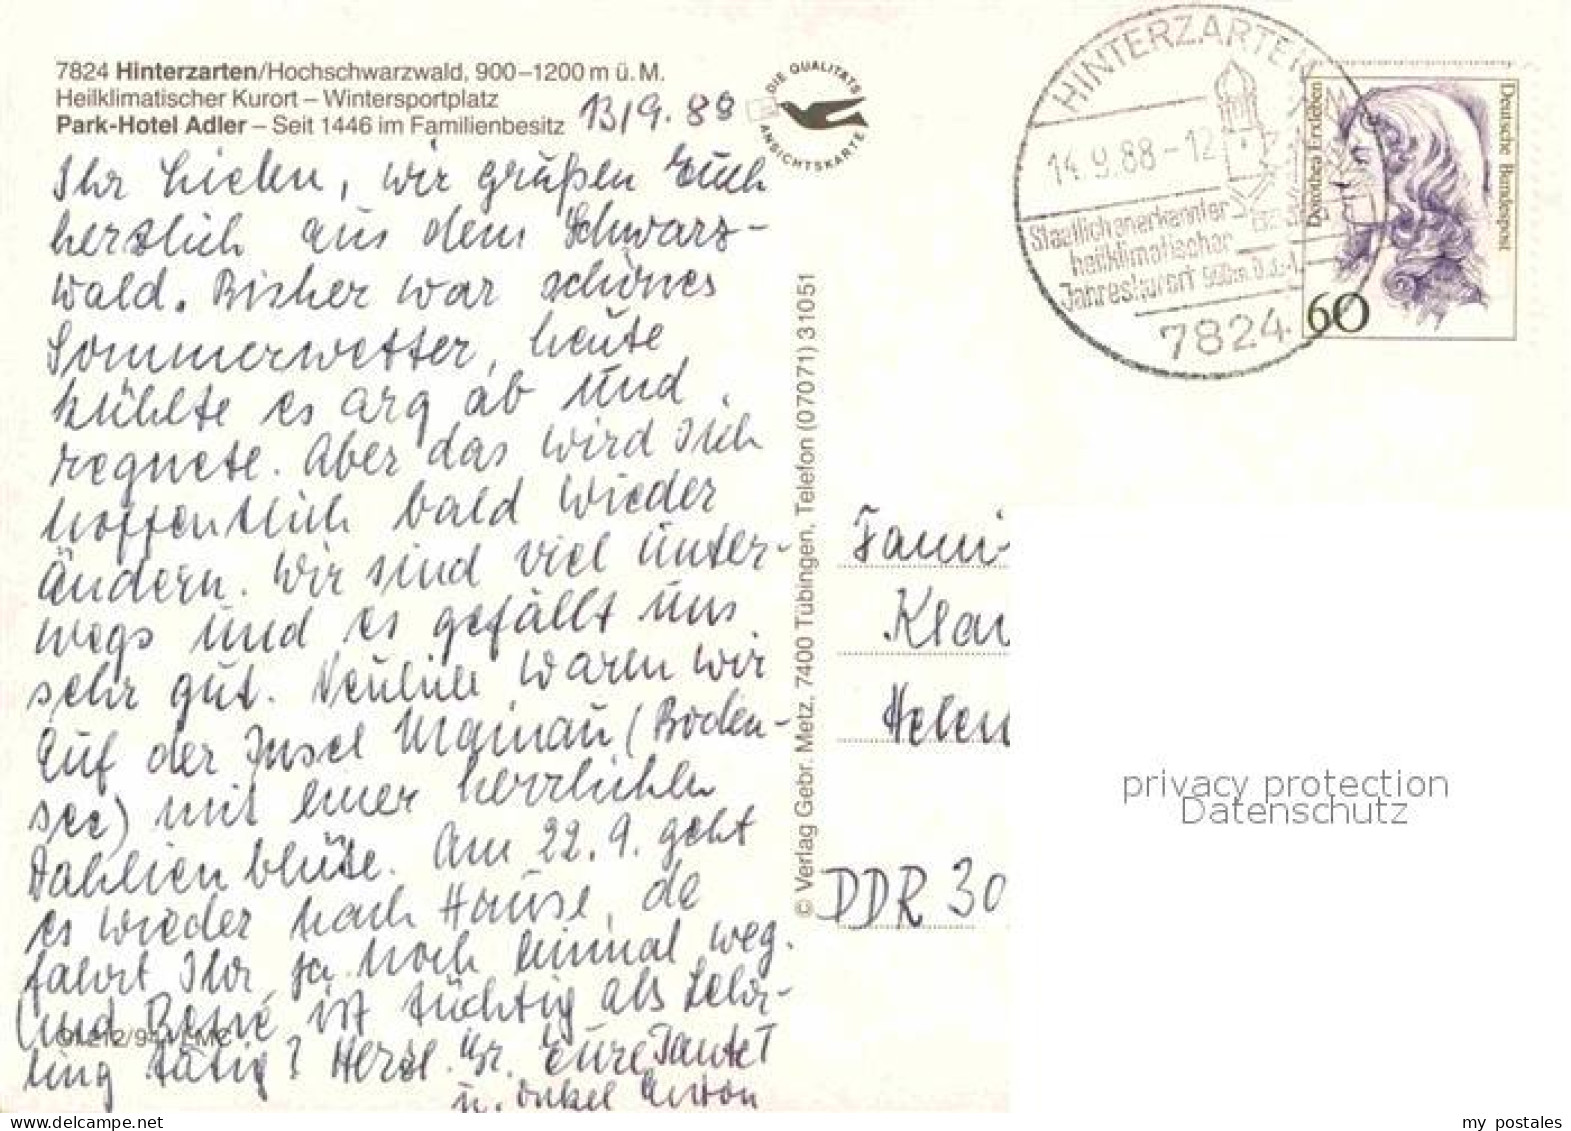 7824 Hinterzarten/Hochschwarzwald, 900–1200 m ü. M.
Heilklimatischer Kurort – Wintersportplatz
Park-Hotel Adler – Seit 1446 im Familienbesitz
13/9.88
DIE QUALITÄTS
ANSICHTSKARTE
Ihr Lieben, wir grüßen Euch
herzlich aus dem Schwarz-
wald. Bisher war schönes
Sommerwetter, heute
kühlte es arg ab und
regnete. Aber das wird sich
hoffentlich bald wieder
ändern. Wir sind viel unter-
wegs und es gefällt uns
sehr gut. Neulich waren wir
auf der Insel Mainau (Boden-
see) mit einer herrlichen
Dahlienblüte. Am 22.9. geht
es wieder nach Hause, da
fahrt Ihr ja noch einmal weg.
(und ist tüchtig als Lehr-
ling tätig? Herzl. Gr. Eure Tante T
u. Onkel Anton
© Verlag Gebr. Metz, 7400 Tübingen, Telefon (07071) 31051
HINTERZARTEN
14.9.88-12
Staatlich anerkannter
heilklimatischer
Jahreskurort
7824
Dorothea Erxleben
Deutsche Bundespost
60
Fami
Klau
Helen
DDR 30
privacy protection
Datenschutz
my postales